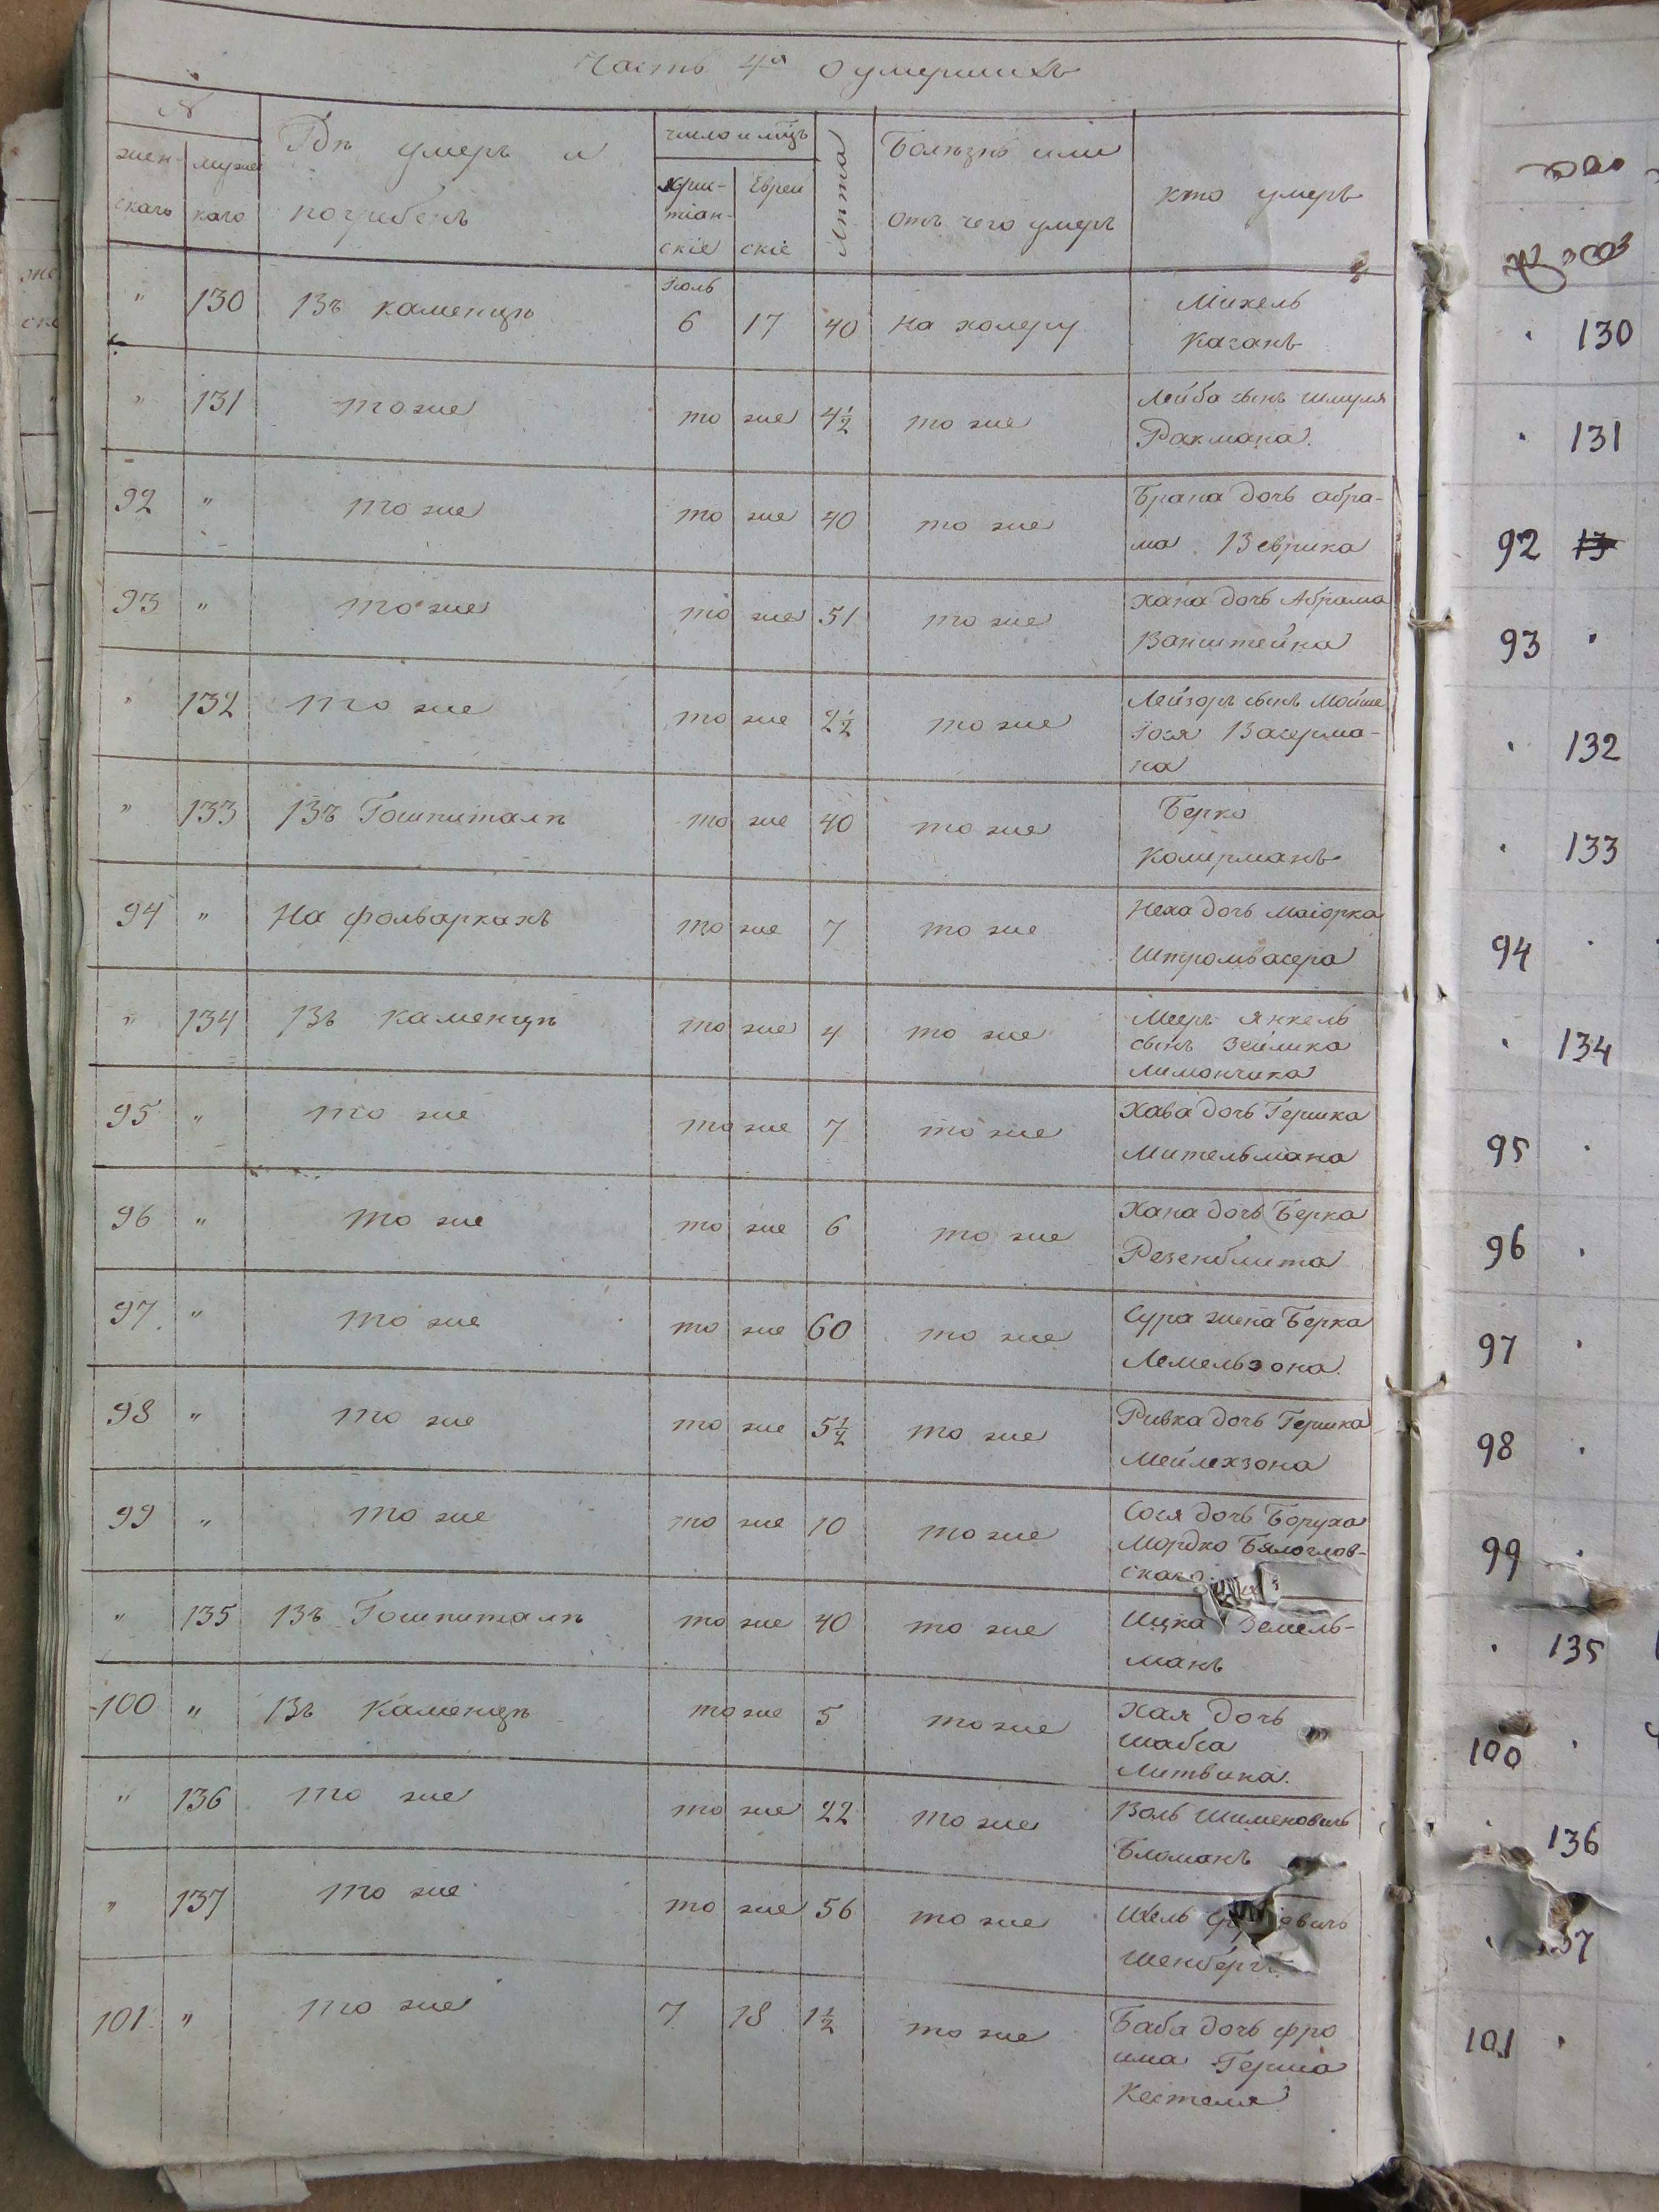 Часть 4я о умершихъ
№
женскаго
мужескаго
Гдѣ умеръ и погребенъ
число и мѣцъ
христіанскіе
Еврейскіе
лѣта
Болѣзнь или отъ чего умеръ
кто умеръ
Іюль
" 130 Въ каменцѣ 6 17 40 на холеру Михель
Каганъ
" 131 тоже то же 4½ то же Лейба сынъ шмуля
Ракмана.
92 " то же то же 40 то же Брана дочь абра-
ма Веврика
93 " тоже то же 51 то же Хана дочь Абрама
Ванштейна
" 132 то же то же 2½ то же Лейзоръ сынъ Мойше
Іося Васерма-
на
" 133 Въ Гошпиталѣ то же 40 то же Берко
Колирманъ
94 " На фольваркахъ то же 7 то же Неха дочь Маіорка
Штромвасера
" 134 Въ каменцѣ то же 4 то же Мееръ Янкель
сынъ Зейлика
Лимончика
95 " то же то же 7 то же Хава дочь Гершка
Мительмана
96 " то же то же 6 то же Хана дочь Берка
Резенблита
97 " то же то же 60 то же Сура жена Берка
Лемельзона.
98 " то же то же 5½ то же Ривка дочь Гершка
Мейлехзона
99 " то же то же 10 то же Сося дочь Боруха
Мордко Бялоглов-
скаго.
" 135 Въ Гошпиталѣ то же 40 то же Ицка Земель-
манъ
100 " Въ Каменцѣ то же 5 то же Хая дочь
шабса
Литвина.
" 136 то же то же 22 то же Воль Шименовичь
Бломанъ
" 137 то же то же 56 то же
Шенберг
101. " то же 7 18 1½ то же Баба дочь фро
има Герша
Кестеля
130
131
92
93
132
133
94
134
95
96
97
98
99
135
100
136
101